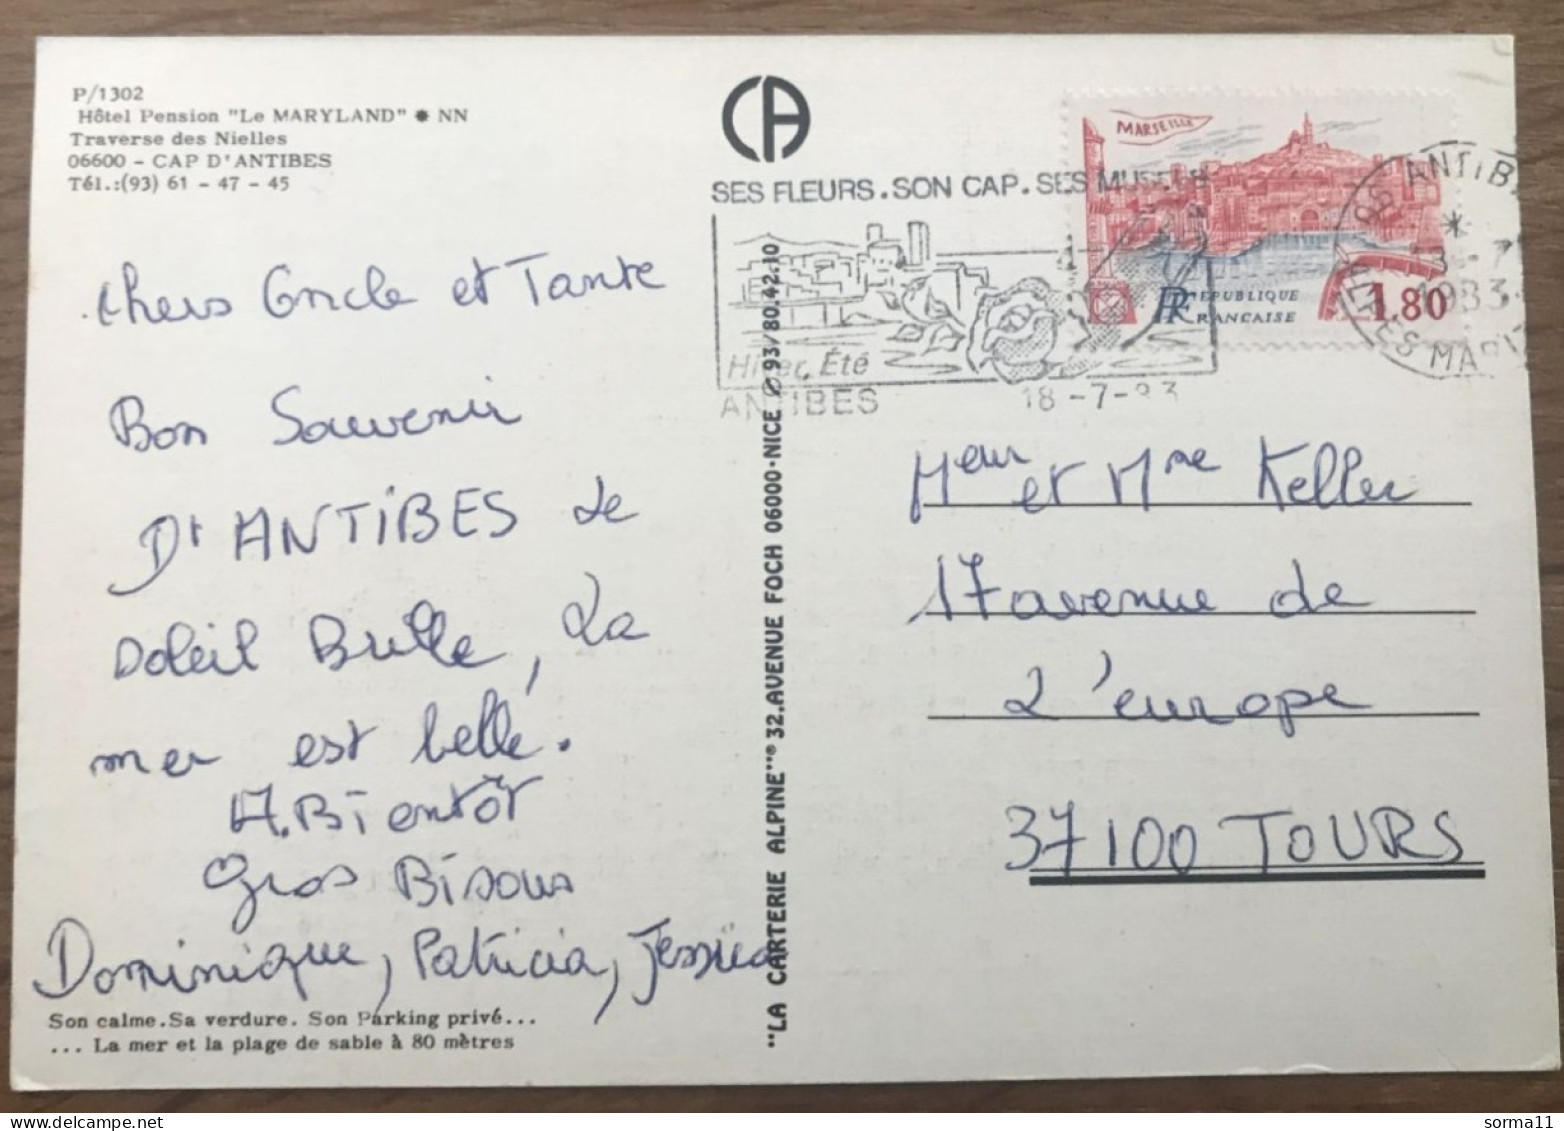 P/1302
Hôtel Pension "Le MARYLAND" ✸ NN
Traverse des Nielles
06600 - CAP D'ANTIBES
Tél.:(93) 61 - 47 - 45
chers Oncle et Tante
Bon Souvenir
D' ANTIBES Le
soleil Brille, La
mer est belle.
A. Bientôt
gros Bisous
Dominique, Patricia, Jessica
Son calme. Sa verdure. Son Parking privé...
... La mer et la plage de sable à 80 mètres
"LA CARTERIE ALPINE"® 32. AVENUE FOCH 06000·NICE ✆ 93/80.42.10
CA
SES FLEURS. SON CAP. SES
Hiver, Été
ANTIBES 18-7-83
MARSEILLE
RF REPUBLIQUE
FRANCAISE 1.80
06 ANTIB
1983
ALPES MARIT
Meur et Mme Keller
17 avenue de
L'europe
37100 TOURS
sorma11